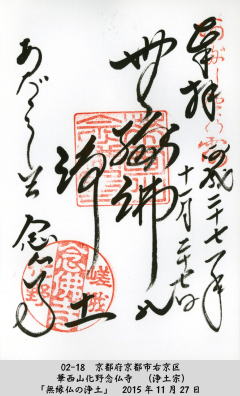 奉拝
平成二十七年
十一月二十七日
無縁佛乃
浄土
あだし野
念仏寺
02-18 京都府京都市右京区
華西山化野念仏寺 (浄土宗)
「無縁仏の浄土」 2015年11月27日